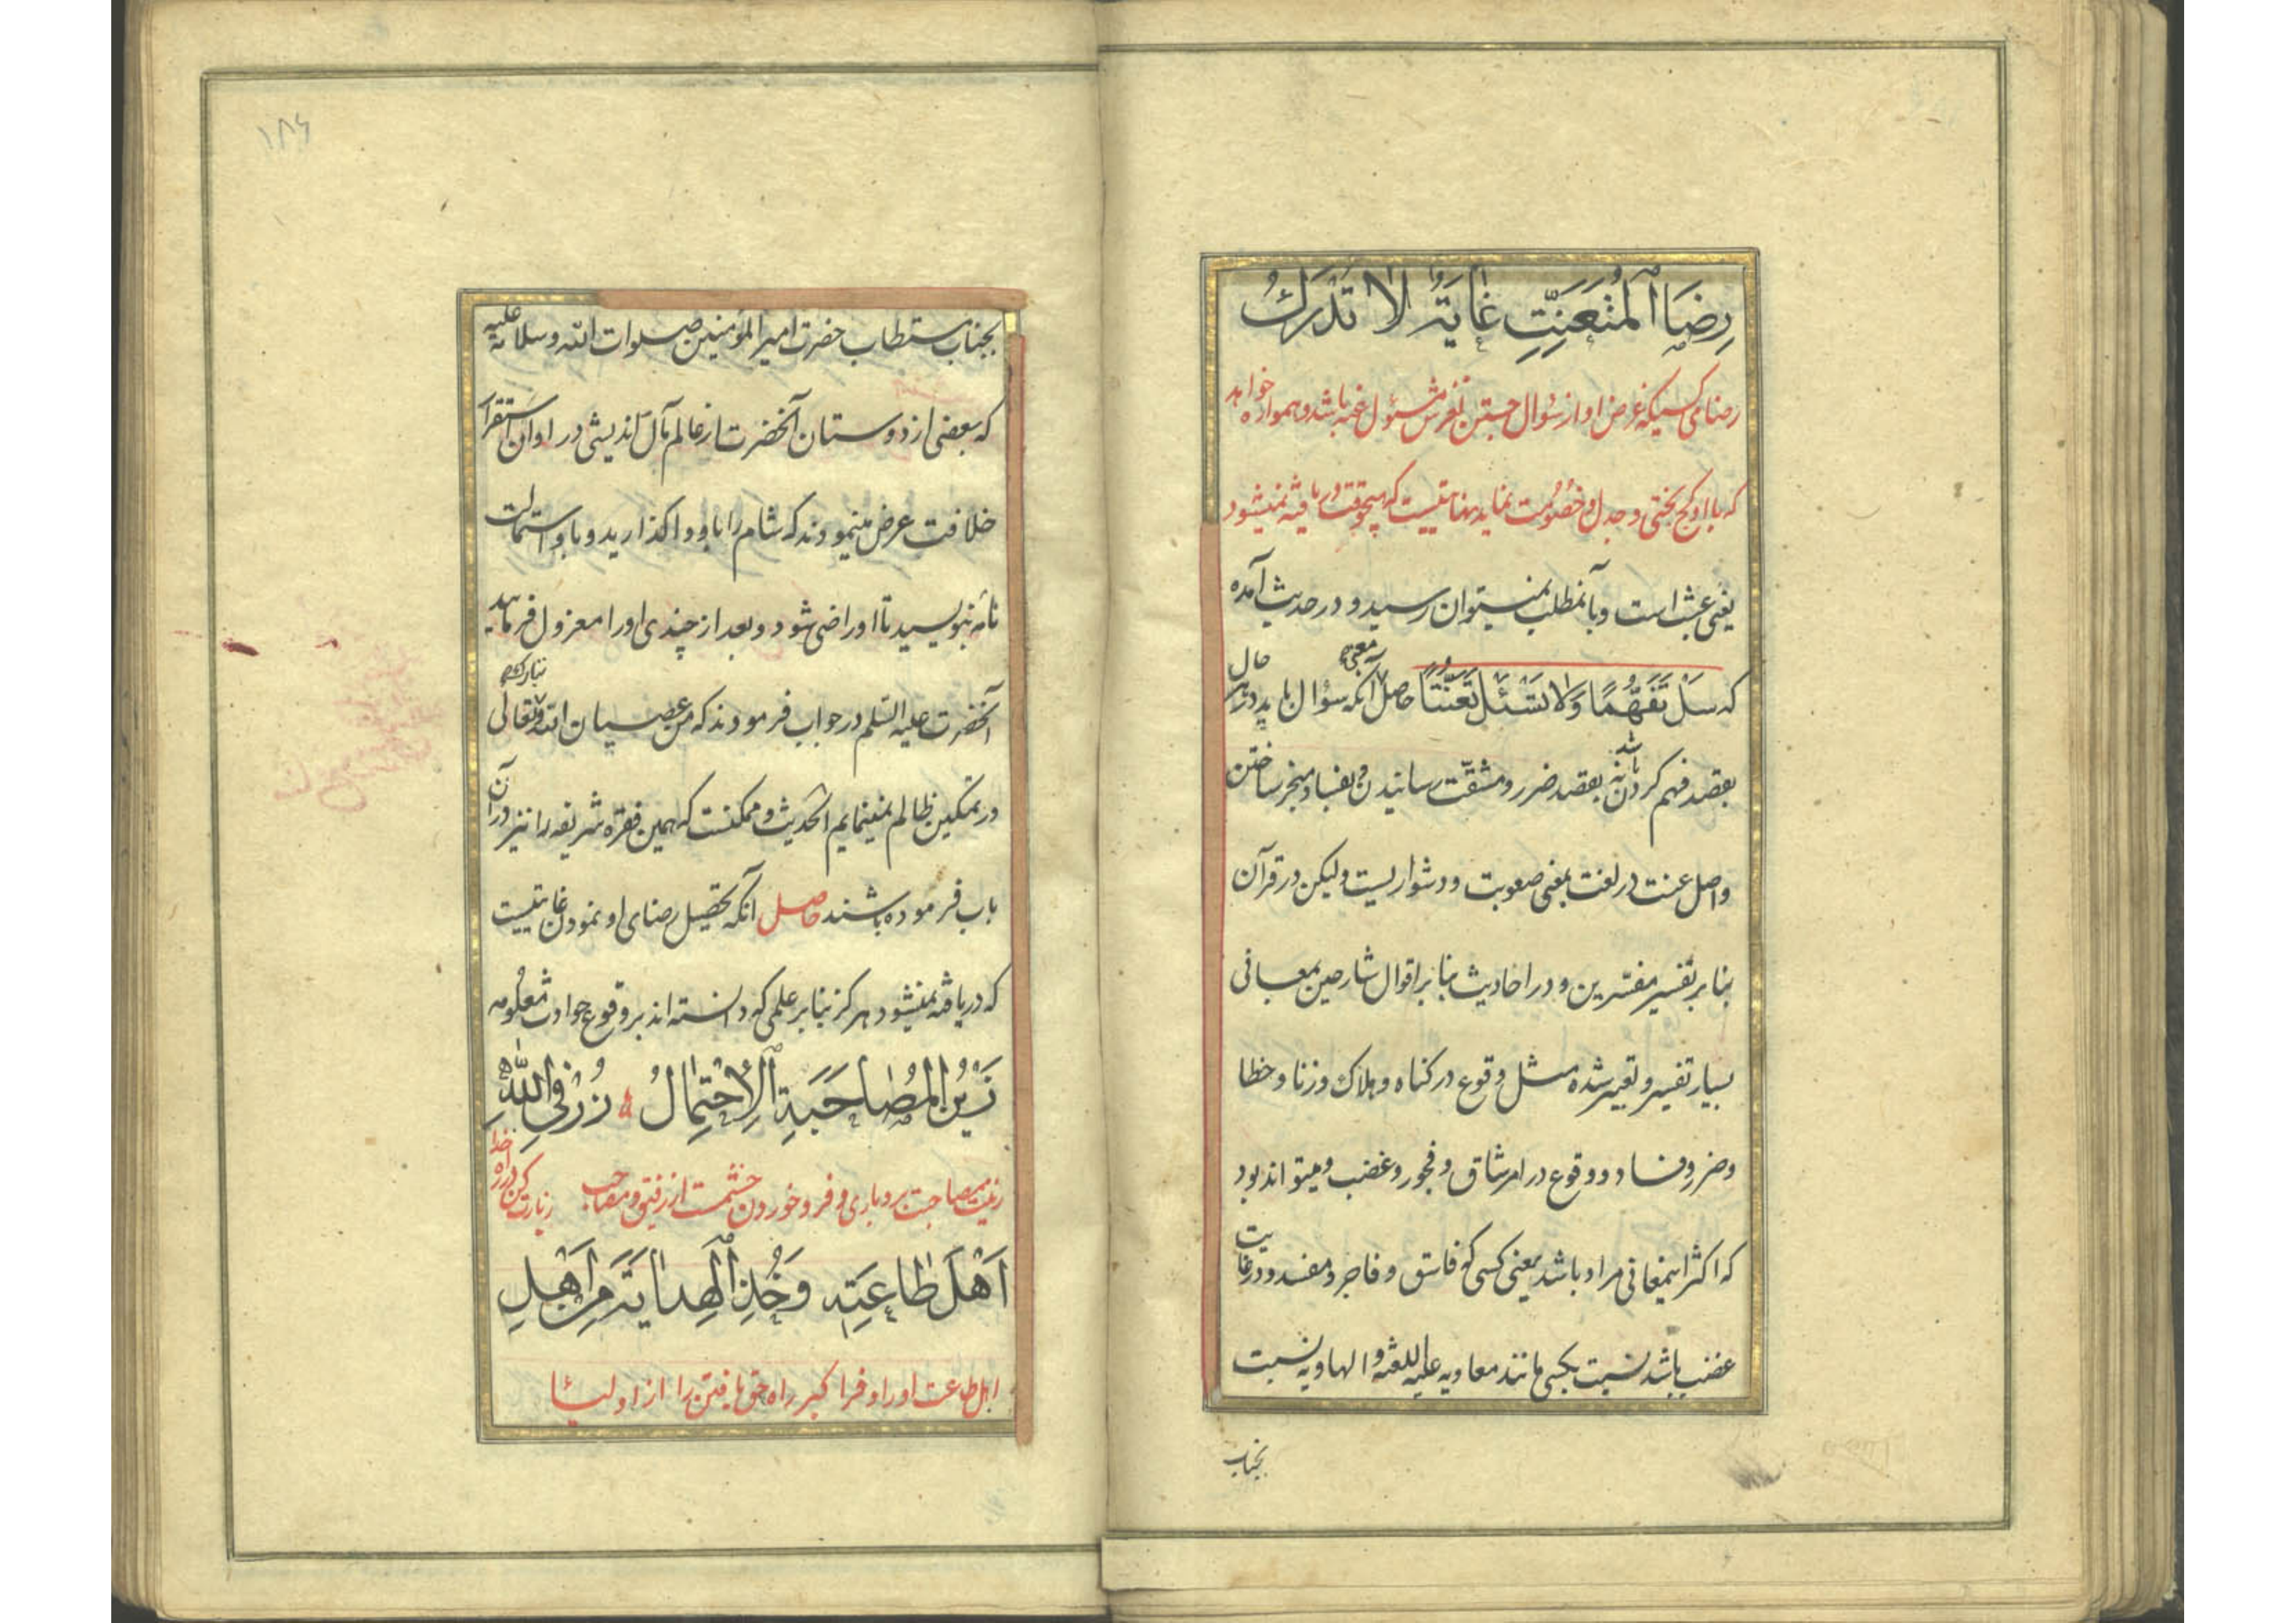 رِضَا الْمُتَعَنِّتِ غَايَةٌ لَا تُدْرَكُ
رضای کسیکه غرض او از سؤال جستن لغزش مسئول عنه باشد و همواره خواهد
که با او کج بحثی و جدل و خصومت نماید نهایتیست که هیچوقت دریافته نمیشود
یعنی عبث است و بآنمطلب نمیتوان رسید و در حدیث آمده
که سَلْ تَفَقُّهًا وَلَا تَسْئَلْ تَعَنُّتًا حاصل معنی آنکه سؤال باید در هر حال
بقصد فهم کردن باشد نه بقصد ضرر و مشقت رسانیدن و بفساد منجر ساختن
و اصل عنت در لغت بمعنی صعوبت و دشواریست ولیکن در قرآن
بنا بر تفسیر مفسّرین و در احادیث بنا بر اقوال شارحین بمعانی
بسیار تفسیر و تعبیر شده مثل وقوع در کناه و هلاک و زنا و خطا
و ضرر و فساد و وقوع در امر شاق و فجور و غضب و میتواند بود
که اکثر اینمعانی مراد باشد یعنی کسی کو فاسق و فاجر و مفسد و در غایت
غضب باشد نسبت بکسی مانند معاویه علیه اللعنه و الهاویه نسبت
بجناب
۱۸۶
بجناب مستطاب حضرت امیر المؤمنین صلوات الله و سلامه علیه
که بعضی از دوستان آنحضرت از عالم مآل اندیشی در اوان استقرار
خلافت عرض مینمودند که شام را باو واکذارید و باو استمالت
نامه بنویسید تا او راضی شود و بعد از چندی او را معزول فرمایید
آنحضرت علیه السّلم در جواب فرمودند که من عصیان الله تبارک و تعالی
در تمکین ظالم نمینمایم الحدیث و ممکنست که همین فقره شریفه را نیز در آن
باب فرموده باشند حاصل آنکه تحصیل رضای او نمودن غایتیست
که دریافته نمیشود هرکز بنا بر علمی که دانسته اند بر وقوع حوادث معلومه
زَيْنُ الْمُصَاحَبَةِ الْاِحْتِمَالُ زُرْ فِي اللّٰهِ
زینت مصاحبت بردباری و فرو خوردن خشمت از رفیق و مصاحب زیارت کن در راه خدا
اَهْلَ طَاعَتِهِ وَخُذِ الْهِدَايَةَ مِنْ اَهْلِ
اهل طاعت او را و فرا کیر راه حق یافتن را از اولیا